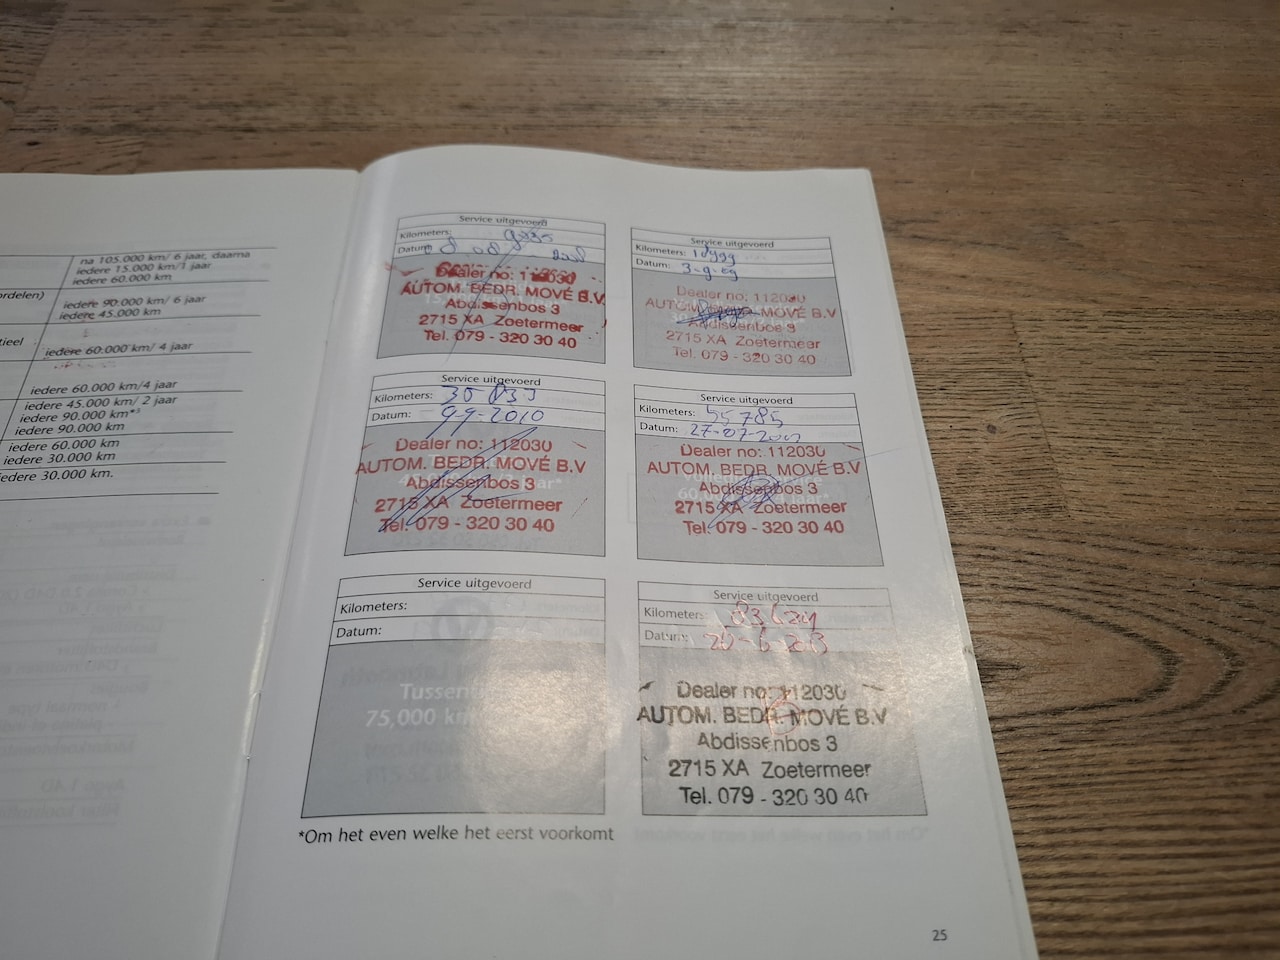 na 105.000 km/ 6 jaar, daarna
iedere 15.000 km/1 jaar
iedere 60.000 km
ordelen)
iedere 90.000 km/ 6 jaar
iedere 45.000 km
tieel
iedere 60.000 km/ 4 jaar
iedere 60.000 km/4 jaar
iedere 45.000 km/ 2 jaar
iedere 90.000 km*³
iedere 90.000 km
iedere 60.000 km
iedere 30.000 km
iedere 30.000 km.
Service uitgevoerd
Kilometers:
Datum:
Dealer no: 112030
AUTOM. BEDR. MOVÉ B.V.
Abdissenbos 3
2715 XA Zoetermeer
Tel. 079 - 320 30 40
Service uitgevoerd
Kilometers:
Datum: 3-9-09
Dealer no: 112030
AUTOM. BEDR. MOVÉ B.V
Abdissenbos 3
2715 XA Zoetermeer
Tel. 079 - 320 30 40
Service uitgevoerd
Kilometers:
Datum: 9-9-2010
Dealer no: 112030
AUTOM. BEDR. MOVÉ B.V
Abdissenbos 3
2715 XA Zoetermeer
Tel. 079 - 320 30 40
Service uitgevoerd
Kilometers: 55785
Datum:
Dealer no: 112030
AUTOM. BEDR. MOVÉ B.V
Abdissenbos 3
2715 XA Zoetermeer
Tel. 079 - 320 30 40
Service uitgevoerd
Kilometers:
Datum:
75,000 km
Service uitgevoerd
Kilometers:
Datum:
Dealer no: 112030
AUTOM. BEDR. MOVÉ B.V
Abdissenbos 3
2715 XA Zoetermeer
Tel. 079 - 320 30 40
*Om het even welke het eerst voorkomt
25